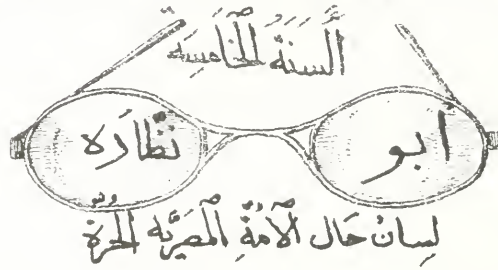 السنة الخامسة
أبو نظاره
لسان حال الأمة المصرية الحرة